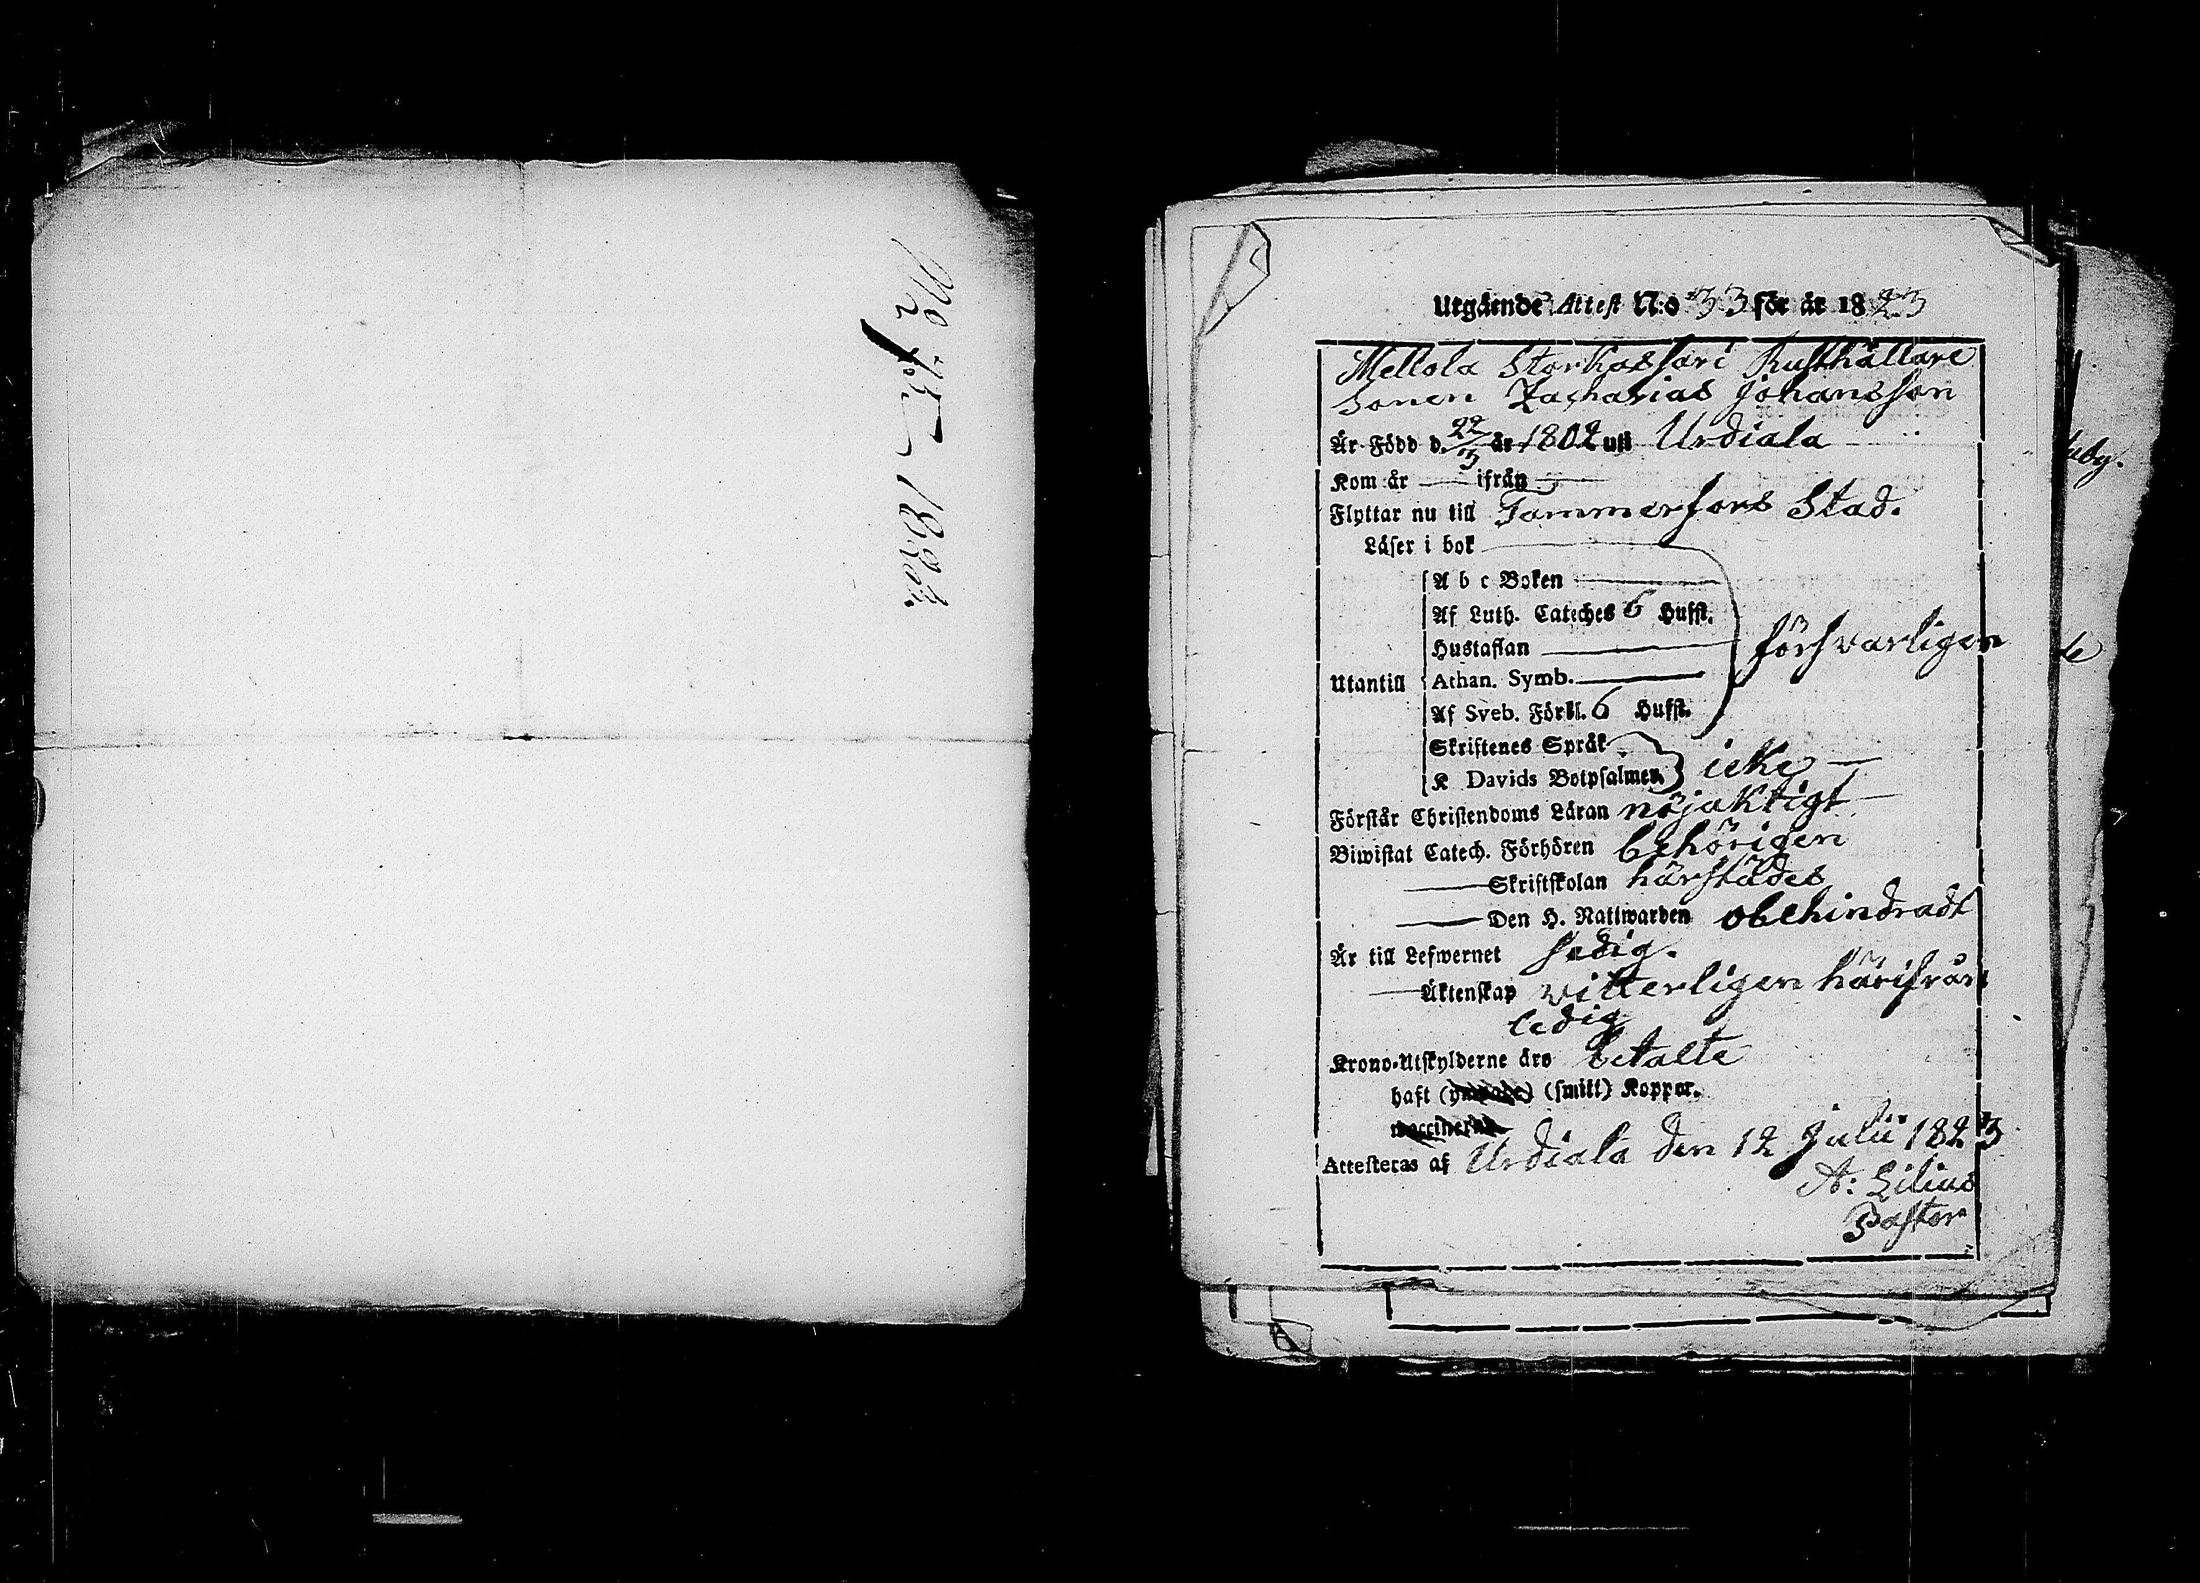 Utgående Attest N:o 33 för år 1823
Mellola Storkassari Rusthållare
Sonen Zacharias Johansson
Är Född d. 22/3 år 1802 uti Urdiala
Kom år — ifrån —
Flyttar nu till Tammerfors Stad.
Läser i bok
A b c Boken
Af Luth. Cateches 6 Hufst.
Hustaflan
försvarligen
Utantill Athan. Symb.
Af Sveb. Förkl. 6 Hufst.
Skriftenes Språk
K Davids Botpsalmer icke
Förstår Christendoms Läran nöjaktigt
Biwistat Catech. Förhören behörigen
Skriftskolan härstädes
Den H. Nattwarden obehindradt
Är till Lefwernet sedig.
Äktenskap vitterligen härifrån
ledig
Krono-Utskylderne äro betalte
haft (smitt) Koppor.
waccinerad
Attesteras af Urdiala den 12 Julii 1823
A: Lilius
Pastor